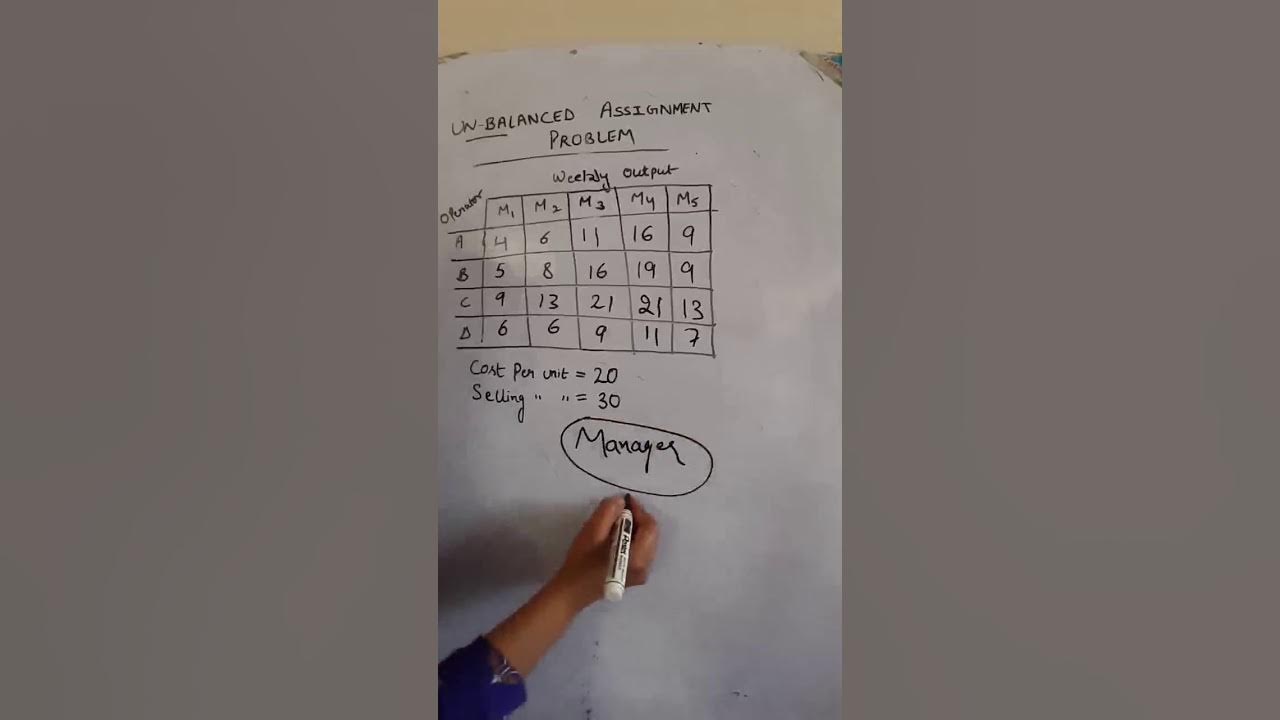 UN-BALANCED ASSIGNMENT
PROBLEM
Weekly Output
Operator M1 M2 M3 M4 M5
A 4 6 11 16 9
B 5 8 16 19 9
C 9 13 21 21 13
D 6 6 9 11 7
Cost Per unit = 20
Selling " " = 30
Manager